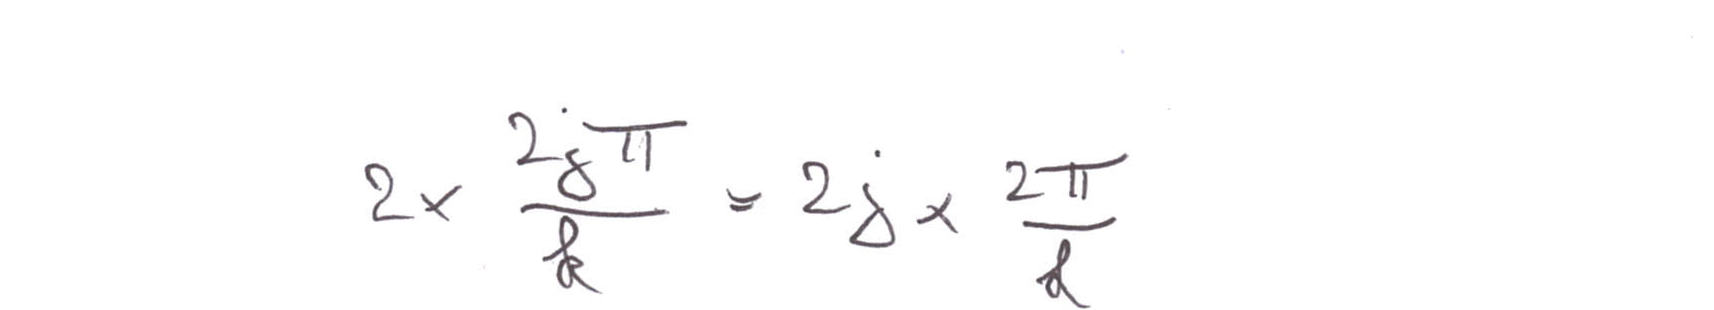 2 × \frac{2jπ}{k} = 2j × \frac{2π}{k}